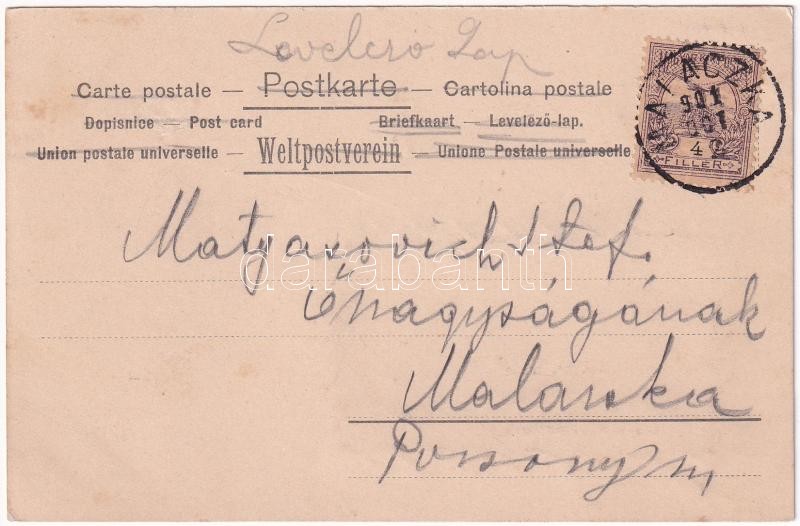 Levelező Lap
Carte postale — Postkarte — Cartolina postale
Dopisnice — Post card Briefkaart — Levelező-lap.
Union postale universelle — Weltpostverein — Unione Postale universelle
MALACZKA
901
FILLER
Matyasovich Stef.
darabanth
Őnagyságának
Malaczka
Pozsony m,